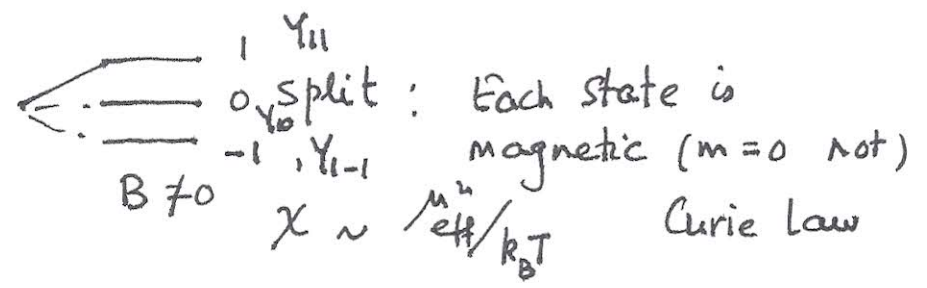 1 Y₁₁
0 Y₁₀ split : Each state is
-1 , Y₁₋₁ magnetic (m=0 not)
B ≠ 0
χ ~ μ²eff/k_BT Curie Law